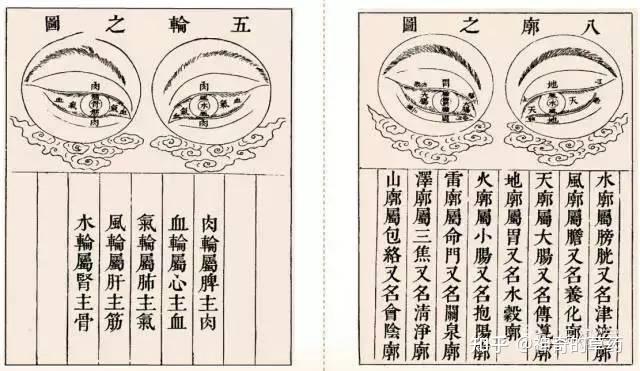 八廓之圖
地
天
水
天
地
胃
大腸
水廓屬膀胱又名津液廓
風廓屬膽又名養化廓
天廓屬大腸又名傳導廓
地廓屬胃又名水穀廓
火廓屬小腸又名抱陽廓
雷廓屬命門又名關泉廓
澤廓屬三焦又名清淨廓
山廓屬包絡又名會陰廓
五輪之圖
肉
血
氣
風
水
氣
血
肉
肉
血
氣
氣
血
肉
肉輪屬脾主肉
血輪屬心主血
氣輪屬肺主氣
風輪屬肝主筋
水輪屬腎主骨
知乎 @神奇的草药